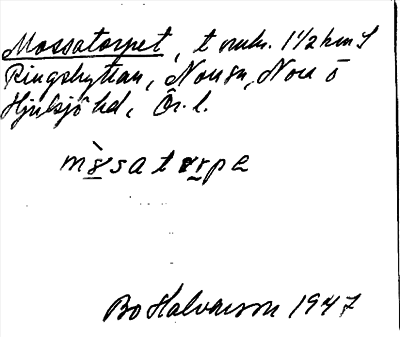 Mossatorpet, t omkr. 1 1/2 km S
Ringshyttan, Nora sn, Nora o
Hjulsjö hd, Ör. l.
Bo Halvarson 1947